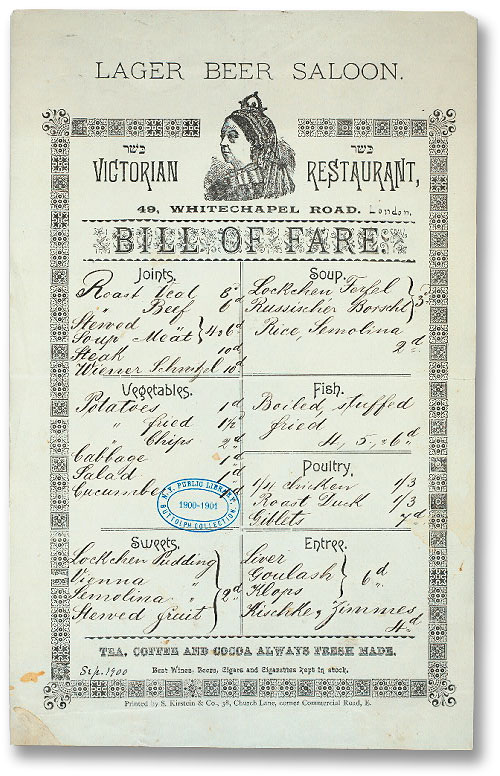 LAGER BEER SALOON.
כשר כשר
VICTORIAN RESTAURANT,
49, WHITECHAPEL ROAD. London.
BILL OF FARE.
Joints.
Roast Veal 8d
" Beef 6d
Stewed
Soup Meat } 4 & 6d
Steak 10d
Wiener Schnitzel 10d
Soup.
Lockchen Ferfel
Russischer Borscht } 3d
Rice, Semolina
2d
Vegetables.
Potatoes 1d
" fried 1½d
" Chips 2d
Cabbage 1d
Salad
Cucumber
Fish.
Boiled, stuffed
fried
4, 5, & 6d
Poultry.
1/4 chicken 1/3
Roast Duck 1/3
Giblets 7d
N.Y. PUBLIC LIBRARY,
1900-1901
BUTTOLPH COLLECTION.
Sweets.
Lockchen Pudding
Vienna "
Semolina "
Stewed fruit } 2d
Entree.
Liver
Goulash
Klops } 6d
Kischke, Zimmes
4d
TEA, COFFEE AND COCOA ALWAYS FRESH MADE.
Sep. 1900
Best Wines, Beers, Cigars and Cigarettes kept in stock.
Printed by S. Kirstein & Co., 38, Church Lane, corner Commercial Road, E.